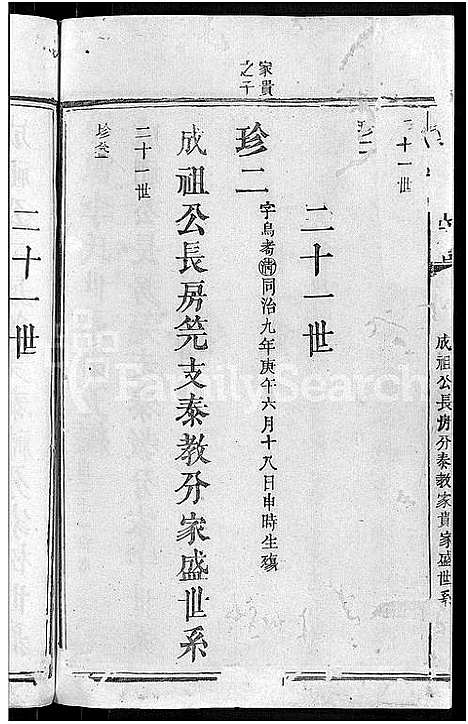 成祖公長房分泰教家貴家盛世系
二十一世
珍二
二十一世
家貴
之子
珍二
字鳥者清同治九年庚午六月十八日申時生殤
成祖公長房筦支泰教分家盛世系
二十一世
珍叁
二十一世
FamilySearch